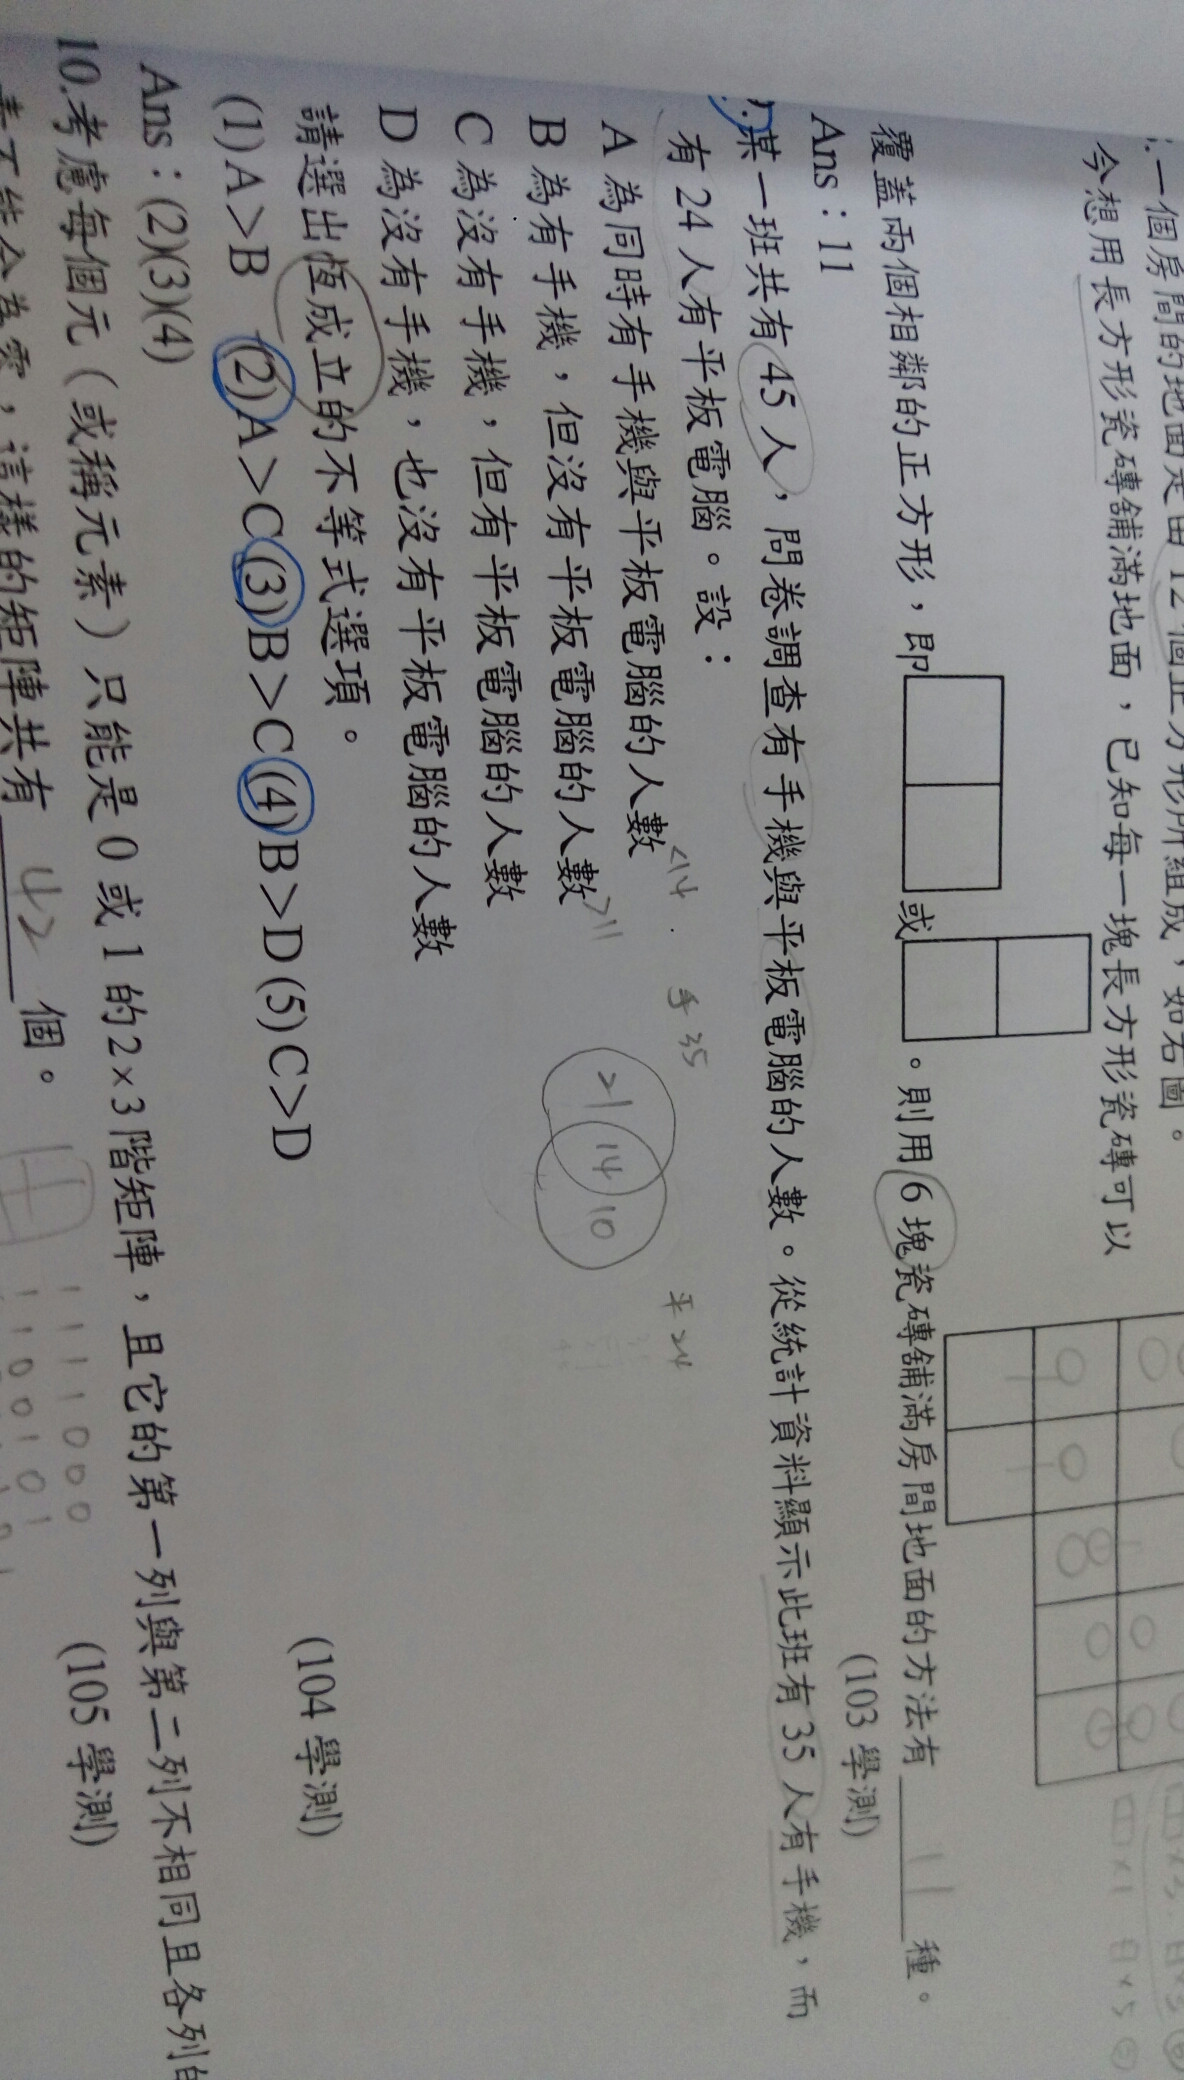 一個房間的地面是由12個正方形所組成，如右圖。
今想用長方形瓷磚舖滿地面，已知每一塊長方形瓷磚可以
覆蓋兩個相鄰的正方形，即 或 。則用6塊瓷磚舖滿房間地面的方法有 11 種。
Ans：11 (103 學測)
某一班共有45人，問卷調查有手機與平板電腦的人數。從統計資料顯示此班有35人有手機，而
有24人有平板電腦。設：
A 為同時有手機與平板電腦的人數 <14
手 35
平 24
B 為有手機，但沒有平板電腦的人數 >11
21 14 10
C 為沒有手機，但有平板電腦的人數
D 為沒有手機，也沒有平板電腦的人數
請選出恆成立的不等式選項。 (104 學測)
(1)A>B (2)A>C (3)B>C (4)B>D (5)C>D
Ans：(2)(3)(4)
10.考慮每個元（或稱元素）只能是0或1的2×3階矩陣，且它的第一列與第二列不相同且各列的
素不能全為零，這樣的矩陣共有 42 個。 (105 學測)
1 1 1 0 0 0
1 1 0 0 1 0 1